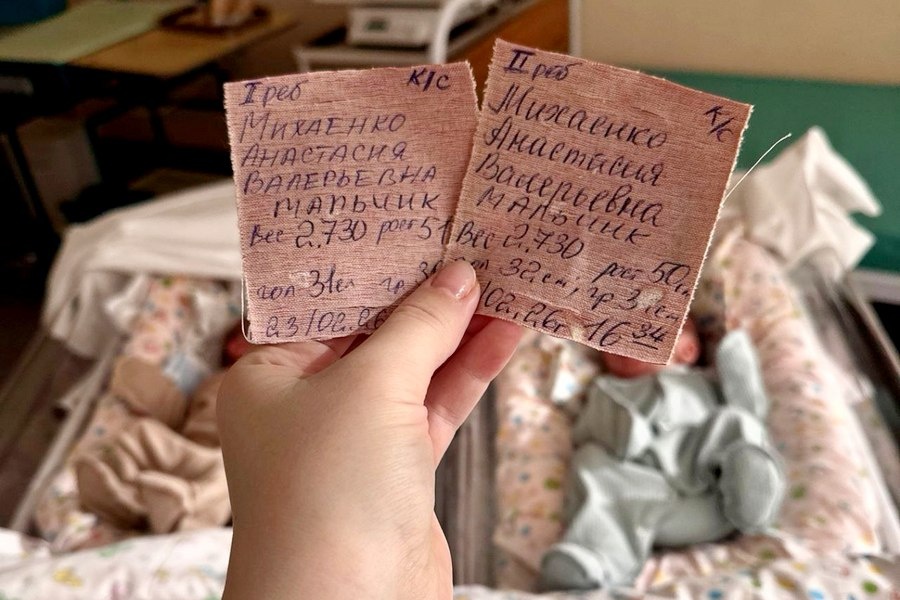 I реб К/С
МИХАЕНКО
АНАСТАСИЯ
ВАЛЕРЬЕВНА
МАЛЬЧИК
Вес 2.730 рост 51
гол 31см гр
23/02.26
II реб К/С
Михаенко
Анастасия
Валерьевна
МАЛЬЧИК
Вес 2.730 рост 50
32см, гр
/02.26г 16 34